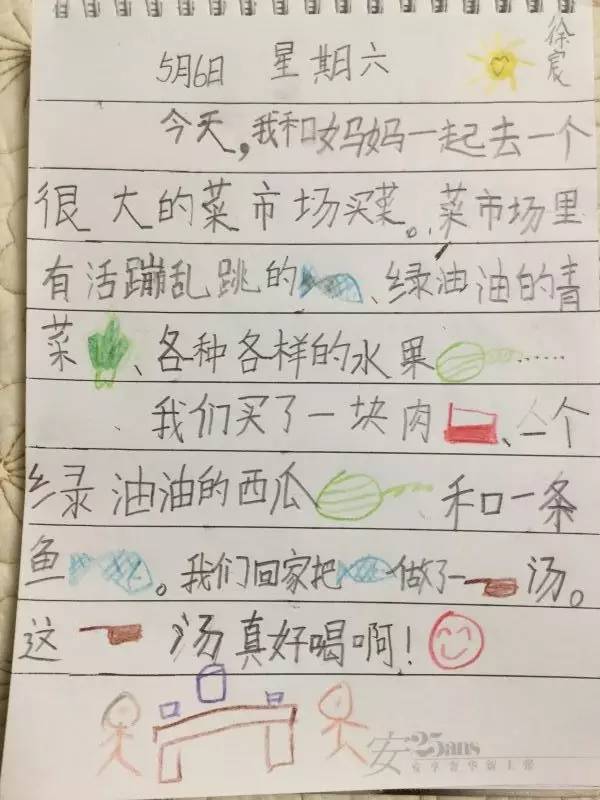 5月6日 星期六
徐宸
今天,我和妈妈一起去一个
很大的菜市场买菜。菜市场里
有活蹦乱跳的、绿油油的青
菜、各种各样的水果……
我们买了一块肉、一个
绿油油的西瓜和一条
鱼。我们回家把做了一汤。
这一汤真好喝啊!
安25ans